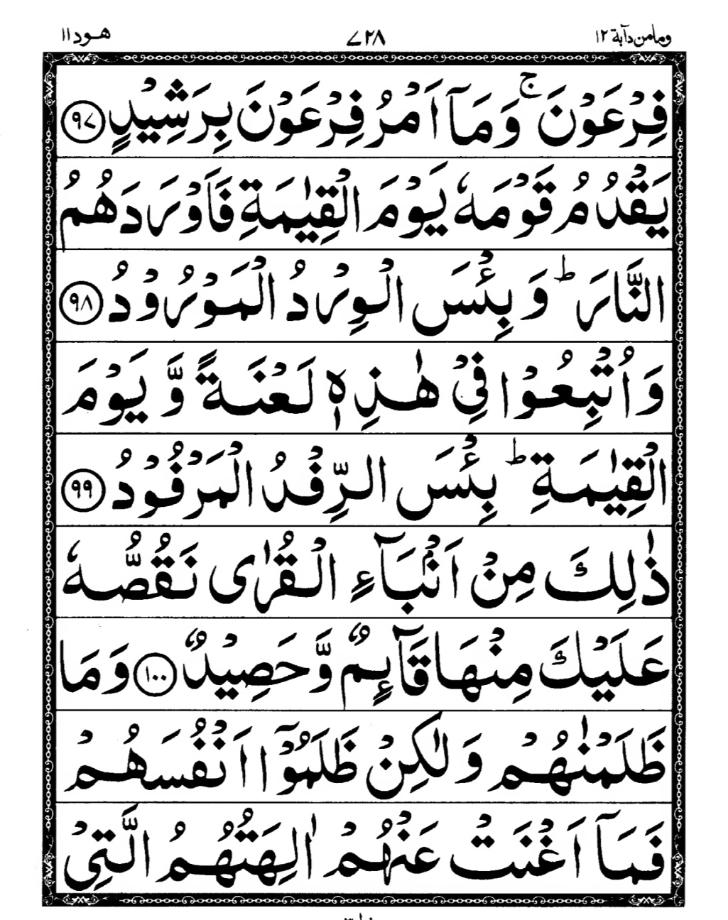 ومامن دآبة ١٢ ٧٢٨ هود ١١
فِرْعَوْنَ ۚ وَمَاۤ اَمْرُ فِرْعَوْنَ بِرَشِیْدٍ ﴿٩٧﴾
یَقْدُمُ قَوْمَهٗ یَوْمَ الْقِیٰمَةِ فَاَوْرَدَهُمُ
النَّارَ ؕ وَ بِئْسَ الْوِرْدُ الْمَوْرُوْدُ ﴿٩٨﴾
وَ اُتْبِعُوْا فِیْ هٰذِهٖ لَعْنَةً وَّ یَوْمَ
الْقِیٰمَةِ ؕ بِئْسَ الرِّفْدُ الْمَرْفُوْدُ ﴿٩٩﴾
ذٰلِكَ مِنْ اَنْۢبَآءِ الْقُرٰی نَقُصُّهٗ
عَلَیْكَ مِنْهَا قَآىِٕمٌ وَّ حَصِیْدٌ ﴿١٠٠﴾ وَ مَا
ظَلَمْنٰهُمْ وَ لٰكِنْ ظَلَمُوْۤا اَنْفُسَهُمْ
فَمَاۤ اَغْنَتْ عَنْهُمْ اٰلِهَتُهُمُ الَّتِیْ